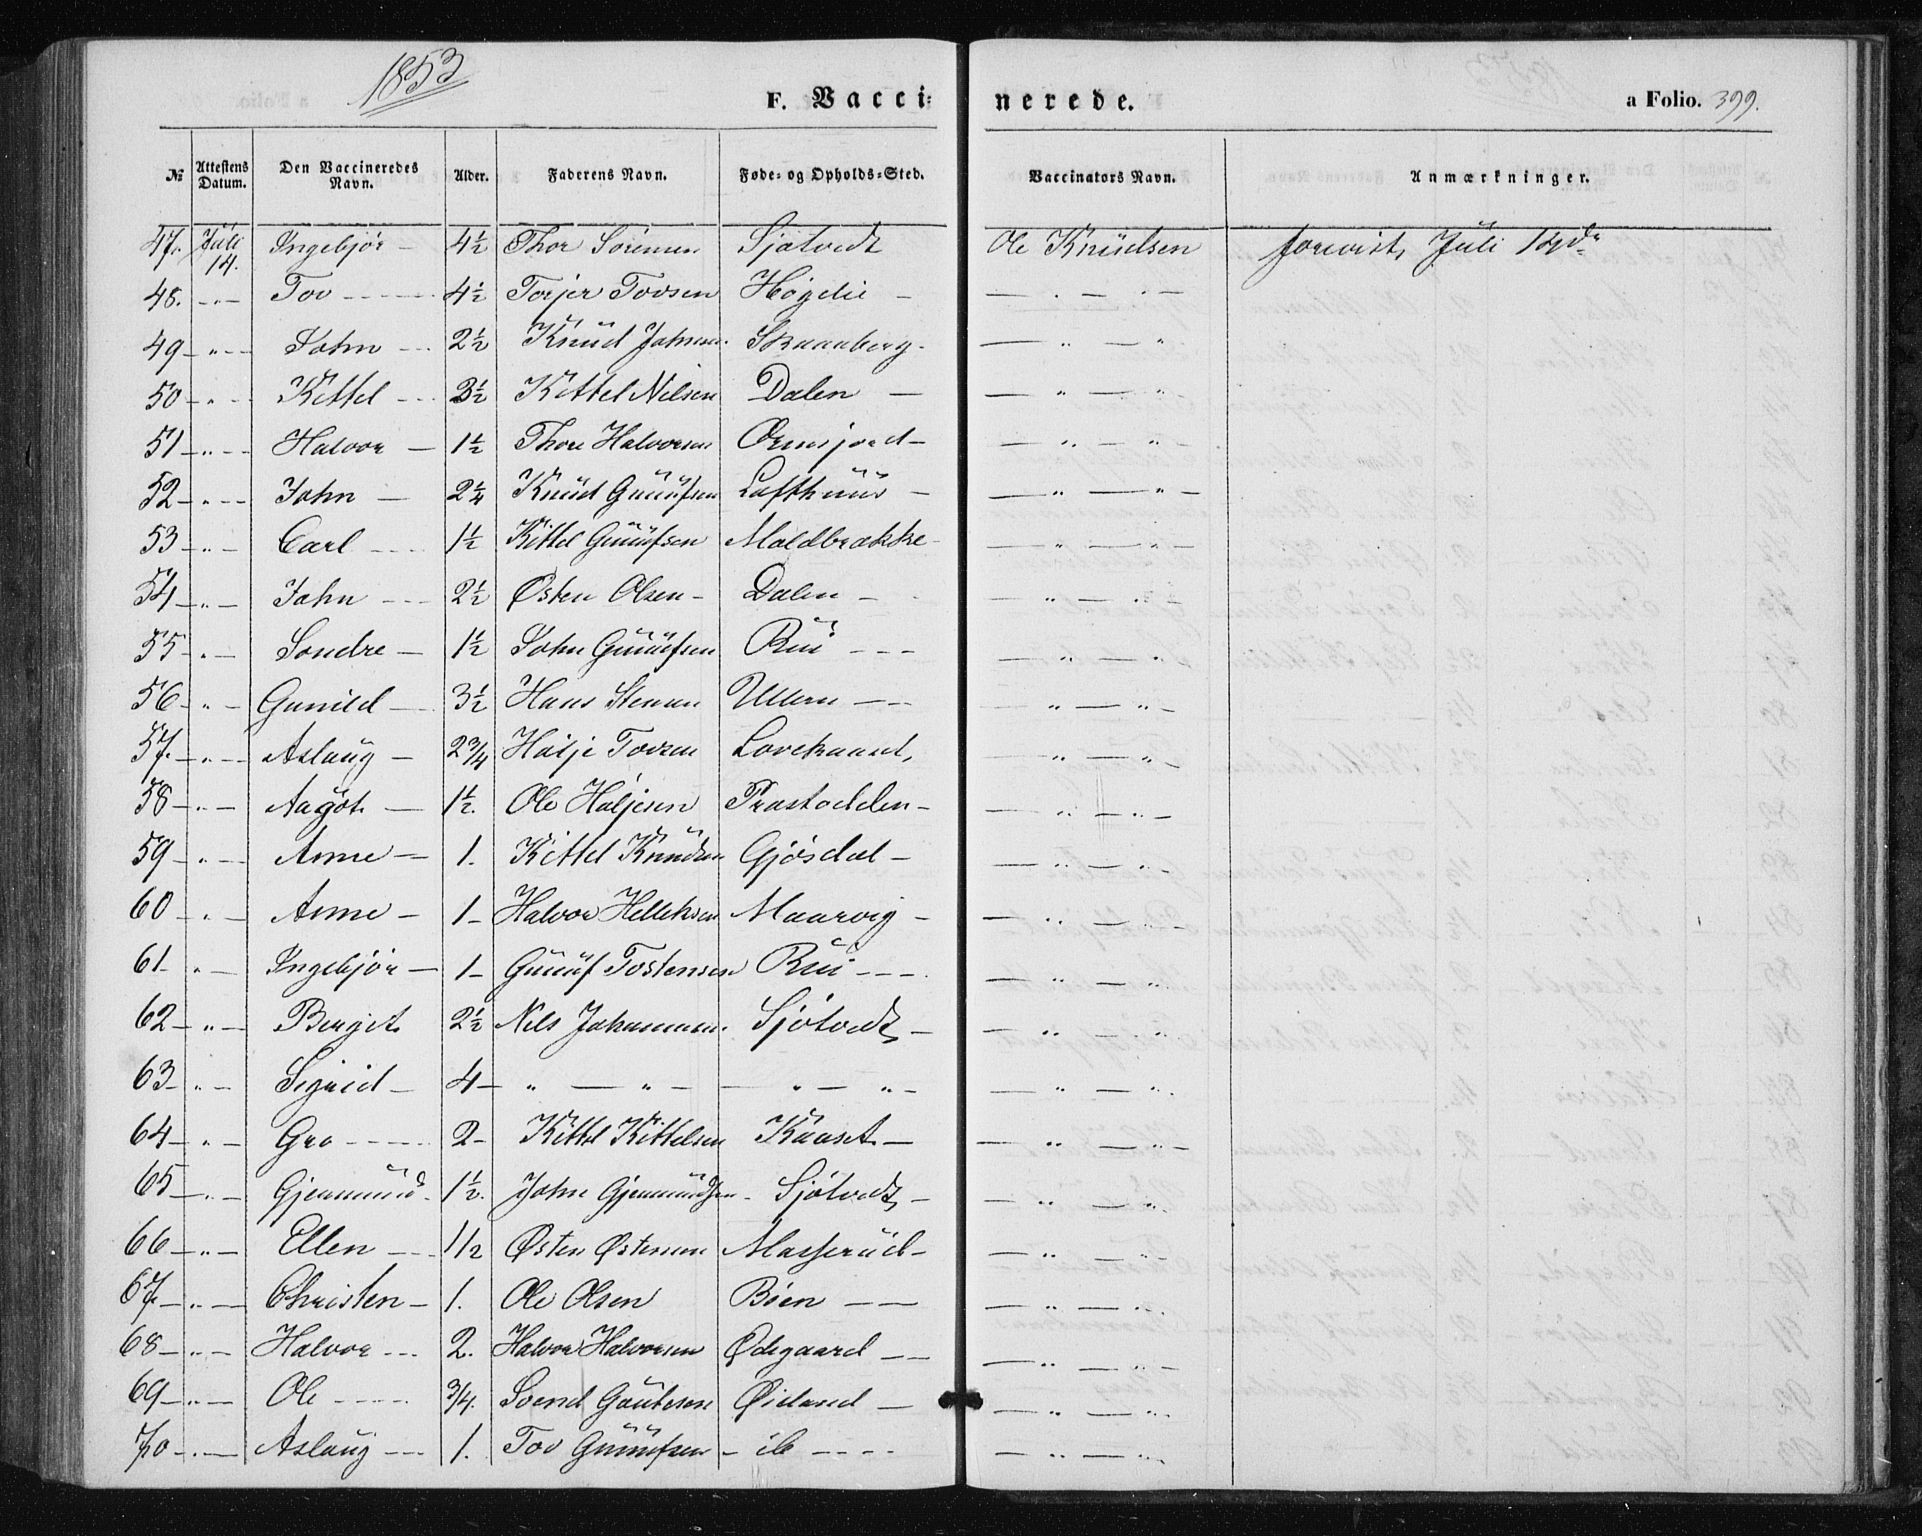 1853
F. Vaccinerede. a Folio. 399.
№ Attestens Datum. Den Vaccineredes Navn. Alder. Faderens Navn. Føde- og Opholds-Sted. Vaccinators Navn. Anmærkninger.
47. Juli 14. Ingebjør - 4½ Thor Sörensen Sjøtvedt Ole Knudsen forevist, Juli 14de
48. - " - Tov - - - 4½ Torjer Tovsen Høgelie - — " — " —
49 - " - John - - 2½ Knud Johnsen Skaaaberg - — " — "
50 - " - Kittel - - 3½ Kittel Nilsen Dalen — — " — "
51 - " - Halvor — 1½ Thore Halvorsen Ormsjord - — " — " -
52 - " - John — 2¼ Knud Gunufsen Lofthuus - — " — " -
53 - " - Carl - - - 1½ Kittel Gunufsen Moldbrække - — " — " -
54 - " - John - - - 2½ Østen Olsen - Dalen - — " — " -
55 - " - Sondre - 1½ John Gunufsen Rui - - - — " — "
56 - " - Gunild — 3½ Hans Stenson Ullern - - - — " — " -
57. - " - Aslaug — 2¾ Halje Tovsen Lovekaaset, — " — "
58 - " - Aagot — 1½. Ole Haljesen Præstodden - — " — " -
59 - " - Anne — 1. Kittel Knudsen Gjösdal - — " — " -
60 - " - Anne - 1 - Halvor Helleksen Maarvig - — " — " -
61 - " - Ingebjør — 1 - Gunuf Tostensen Rui - - - — " — " -
62 - " - Bergit 2½ Nils Johannesen. Sjötvedt - — " — " -
63 - " - Sigrid - 4 - " — " — — " — " - — " — " -
64 - " - Gro - - - - 2 - Kittel Kittelsen Kaaset - — " — " -
65 - " - Gjermund - 1½. John Gjermundsen - Sjötvedt - — " — " -
66 - " - Ellen - - - 1½ Østen Østensen Masserud - — " — " -
67. - " - Christen - 1. Ole Olsen Bøen — — — " — " -
68 - " - Halvor - - - 2. Halvor Halvorsen Ødegaard — — — " — " -
69 - " - Ole - - - - ¾. Svend Gautesen Øiland — — " — " -
70 - " - Aslaug - - - 1. Tov Gunufsen - ib - - - - — " — " -